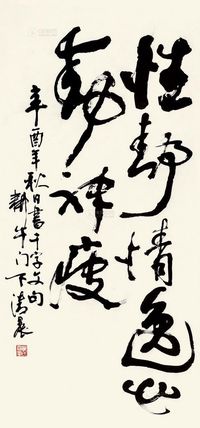 性静情逸心
動神疲
辛酉年秋日书千字文句
牛门下清晨